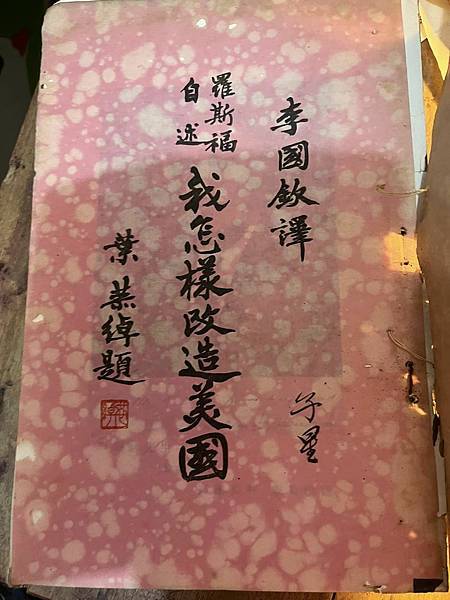 李國欽譯
子星
羅斯福
自述
我怎樣改造美國
葉恭綽題